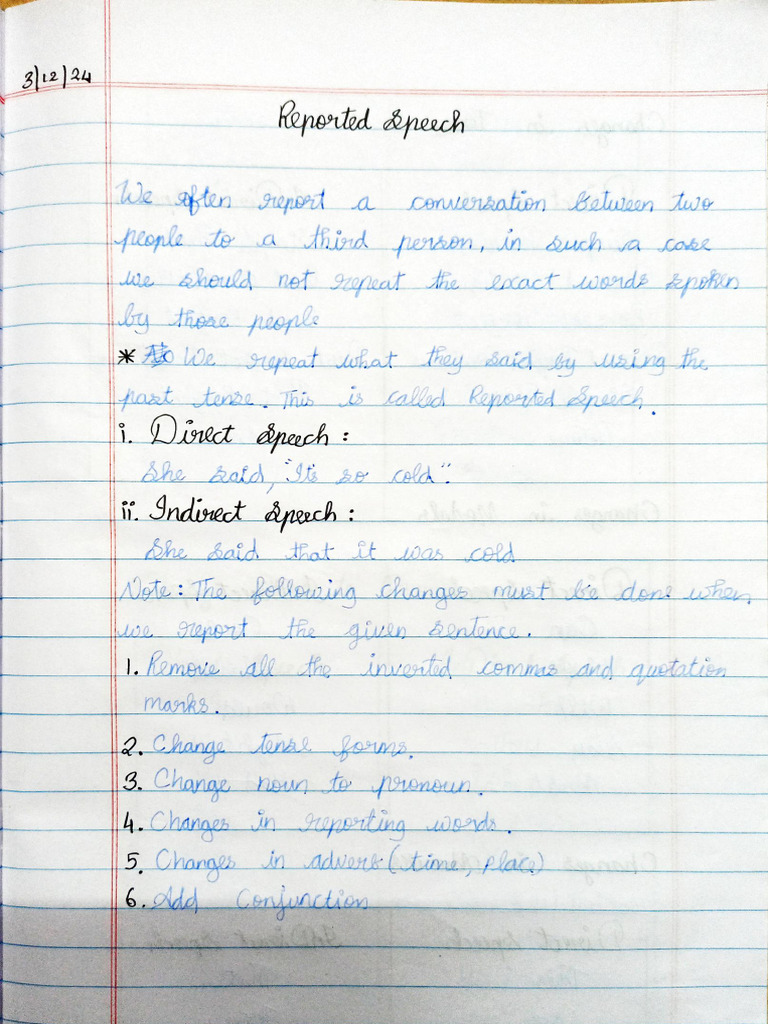 3/12/24
Reported Speech
We often report a conversation between two
people to a third person, in such a case
we should not repeat the exact words spoken
by those people
* We repeat what they said by using the
past tense. This is called Reported Speech.
i. Direct Speech :
She said, "It's so cold".
ii. Indirect Speech :
She said that it was cold
Note : The following changes must be done when
we report the given sentence.
1. Remove all the inverted commas and quotation
marks.
2. Change tense forms.
3. Change noun to pronoun.
4. Changes in reporting words.
5. Changes in adverb (time, place)
6. Add Conjunction